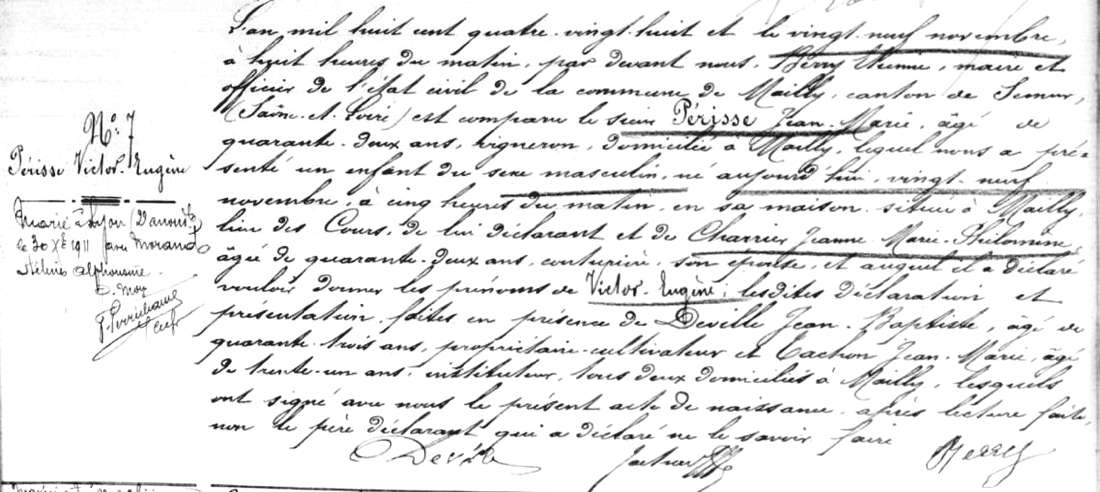 N° 7
Périsse Victor-Eugène
Marié à Lyon (2e arrondt)
le 30 Xbre 1911 avec Morand
Alphonsine
L'an mil huit cent quatre-vingt-huit et le vingt-neuf novembre,
à huit heures du matin, par devant nous, Berry Etienne, maire et
officier de l'état civil de la commune de Mailly, canton de Semur,
(Saône-et-Loire) est comparu le sieur Périsse Jean-Marie, âgé de
quarante-deux ans, vigneron, domicilié à Mailly, lequel nous a pré-
senté un enfant du sexe masculin, né aujourd'hui, vingt-neuf
novembre, à cinq heures du matin, en sa maison située à Mailly,
lieu des Cours, de lui déclarant et de Charrier Jeanne-Marie-Philomine,
âgée de quarante-deux ans, couturière, son épouse, et auquel il a déclaré
vouloir donner les prénoms de Victor-Eugène; lesdites déclaration et
présentation faites en présence de Deville Jean-Baptiste, âgé de
quarante-trois ans, propriétaire-cultivateur et Tachon Jean-Marie, âgé
de trente-un ans, instituteur, tous deux domiciliés à Mailly, lesquels
ont signé avec nous le présent acte de naissance après lecture faite,
non le père déclarant qui a déclaré ne le savoir faire
Deville Berry